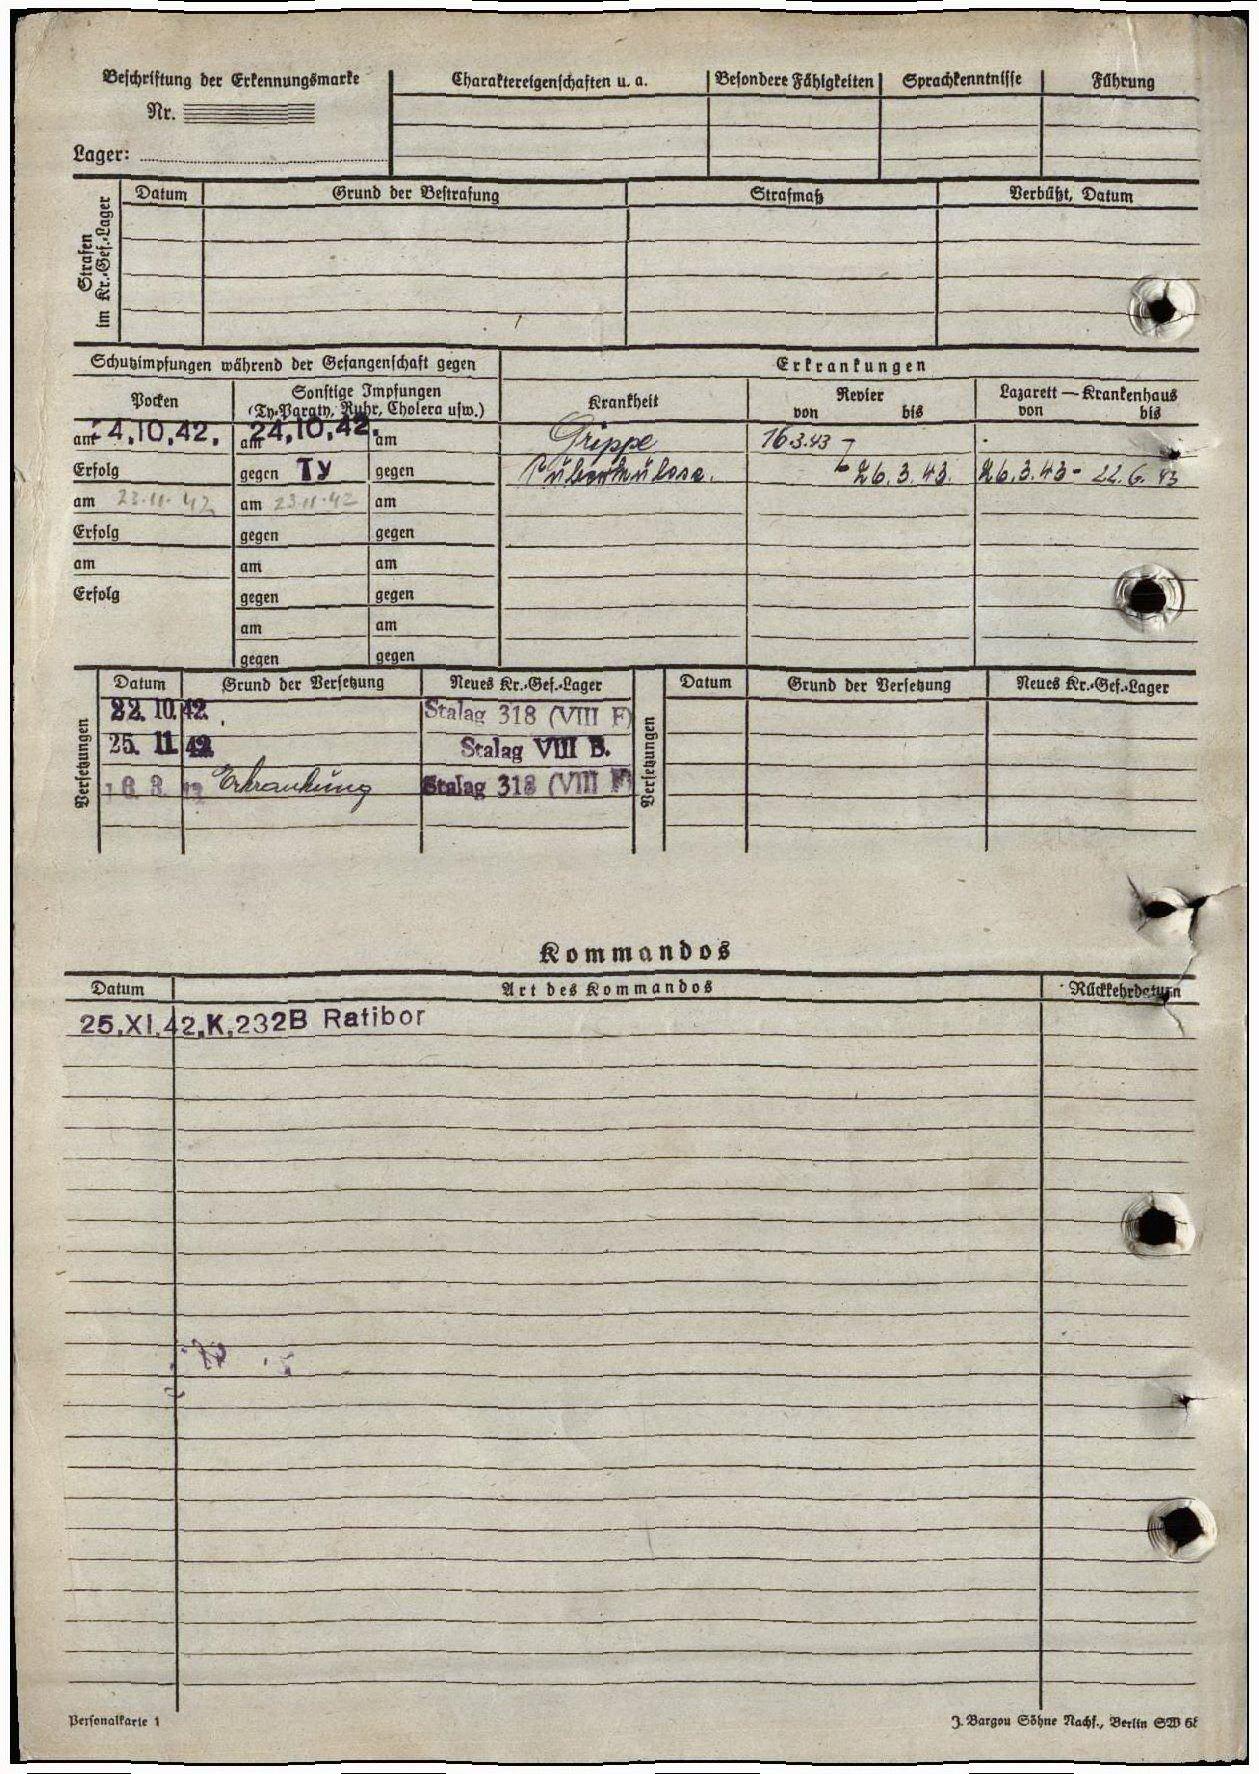 Beschriftung der Erkennungsmarke
Nr.
Lager:
Charaktereigenschaften u. a.
Besondere Fähigkeiten
Sprachkenntnisse
Führung
Strafen
im Kr.-Gef.-Lager
Datum
Grund der Bestrafung
Strafmaß
Verbüßt, Datum
Schutzimpfungen während der Gefangenschaft gegen
Erkrankungen
Pocken
Sonstige Impfungen
(Ty-Paraty, Ruhr, Cholera usw.)
Krankheit
Revier
von bis
Lazarett — Krankenhaus
von bis
am 24.10.42. am 24.10.42. am
Grippe 16.3.43
Erfolg gegen Ty gegen
Tuberkulose. 26.3.43. 26.3.43 - 22.6.43
am 23.11.42 am 23.11.42 am
Erfolg gegen gegen
am am am
Erfolg gegen gegen
am am
gegen gegen
Versetzungen
Datum Grund der Versetzung Neues Kr.-Gef.-Lager
22. 10. 42. Stalag 318 (VIII F)
25. 11. 42 Stalag VIII B.
Erkrankung Stalag 318 (VIII F)
Versetzungen
Datum Grund der Versetzung Neues Kr.-Gef.-Lager
Kommandos
Datum Art des Kommandos Rückkehrdatum
25.XI.42.K.232B Ratibor
Personalkarte 1
J. Bargou Söhne Nachf., Berlin SW 68